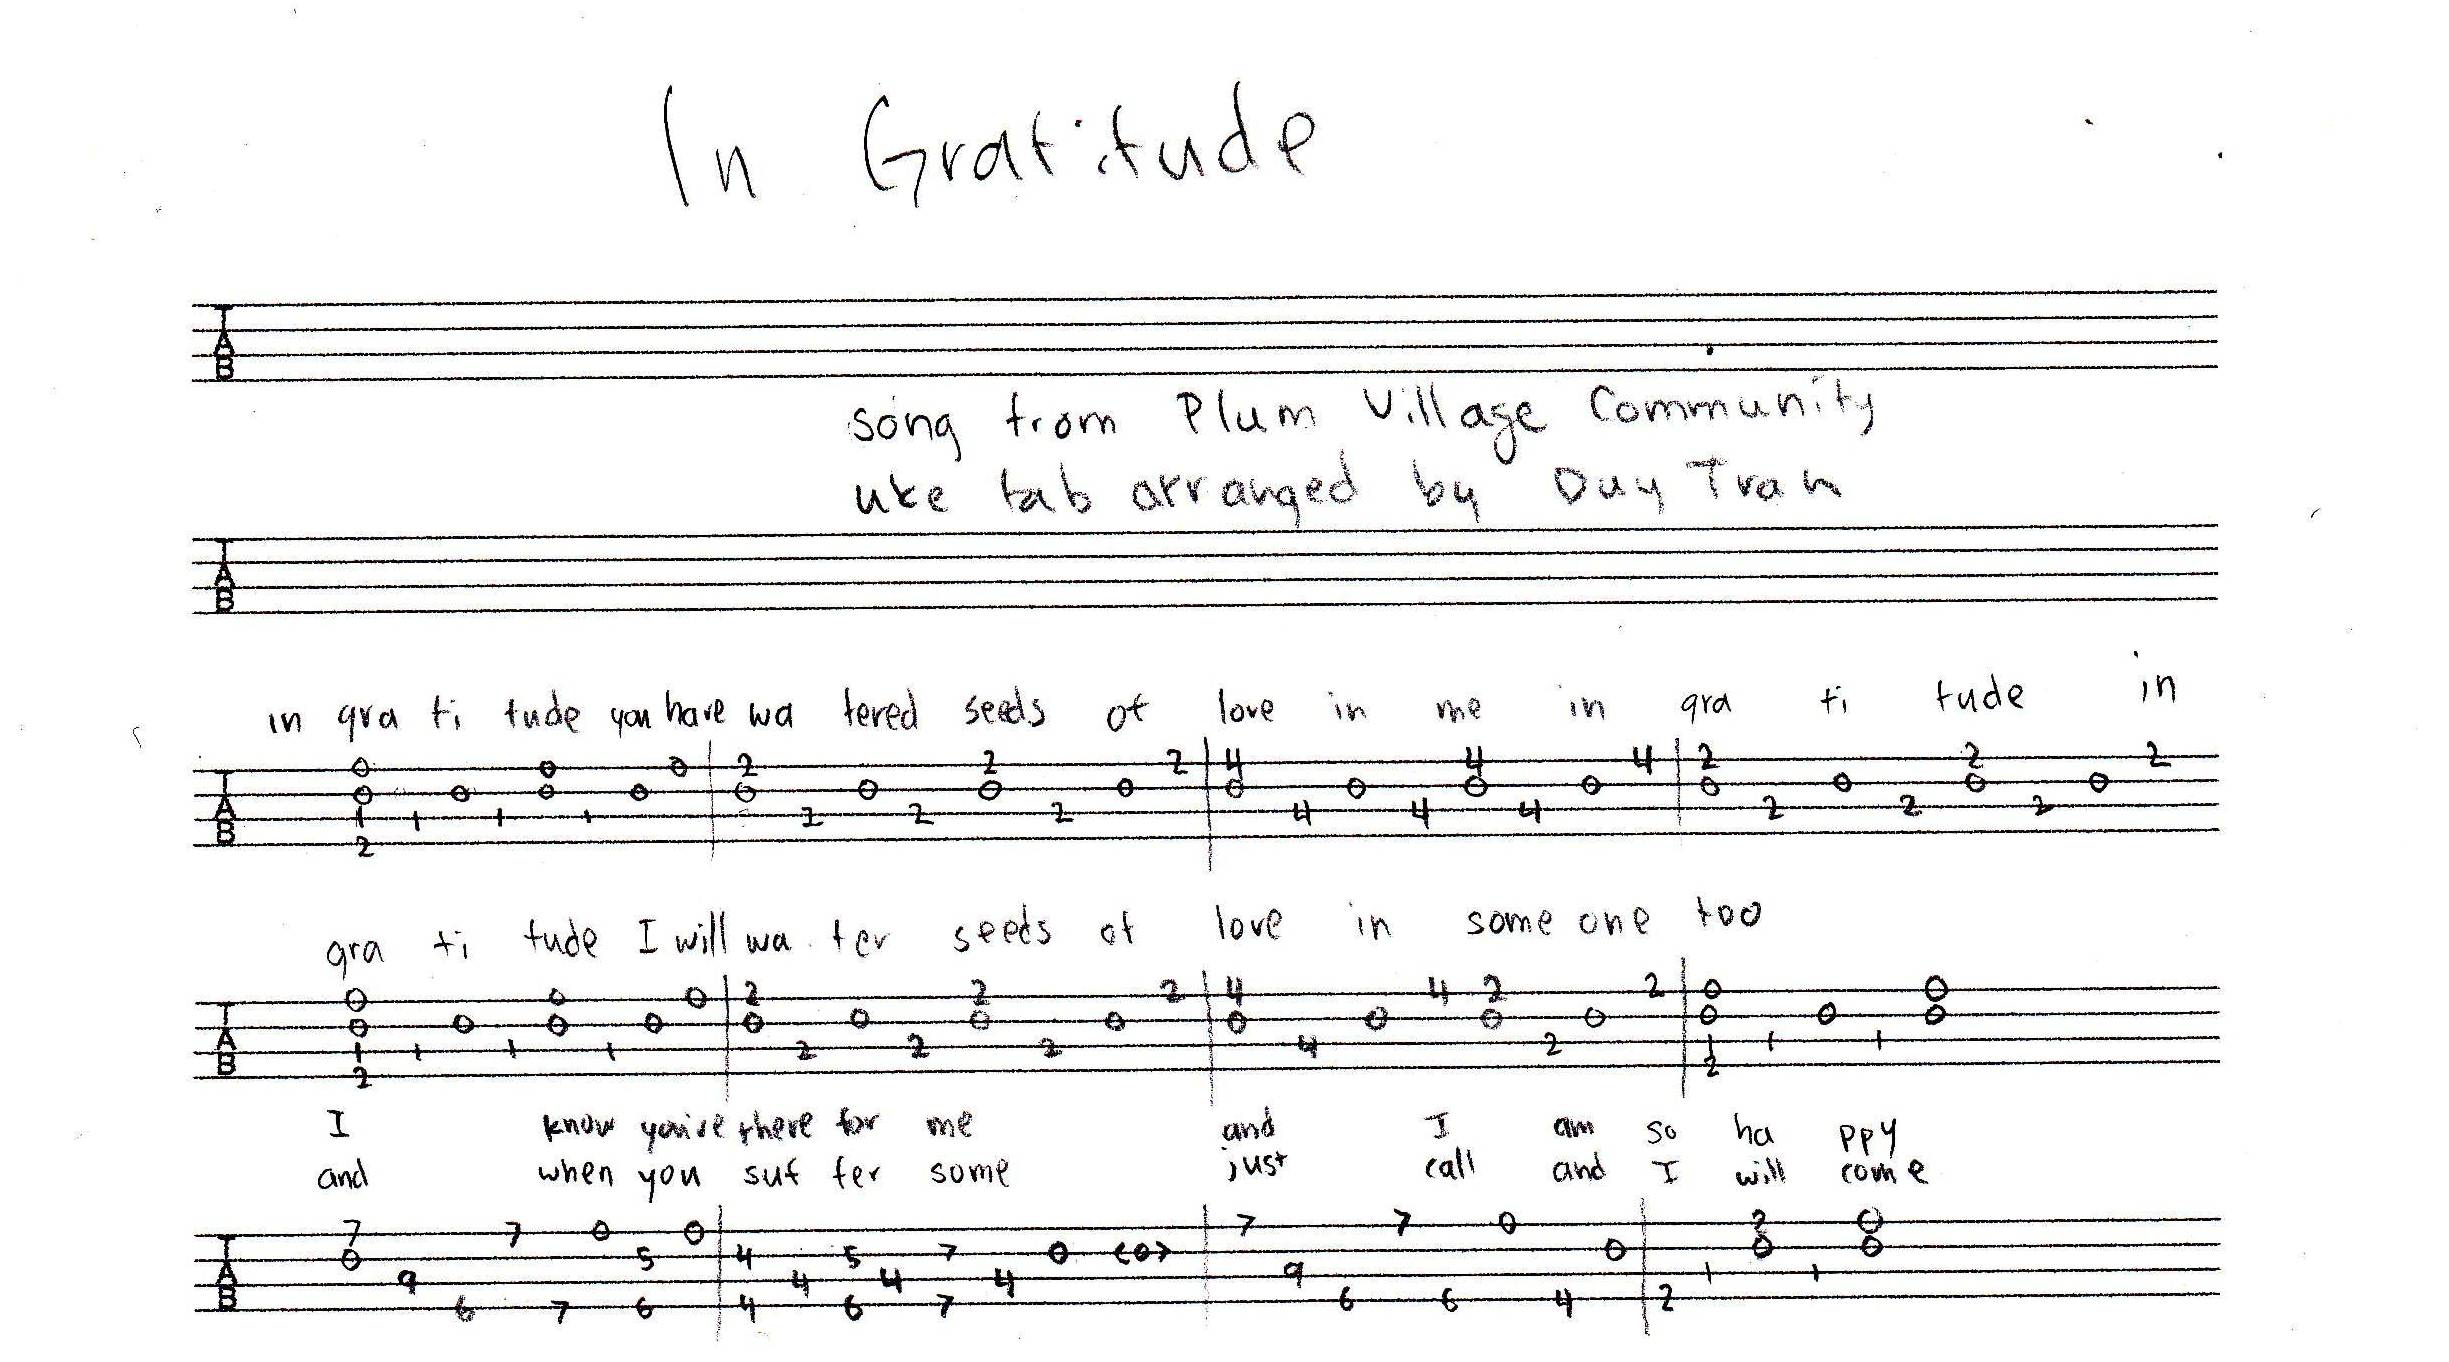 In Gratitude
TAB
song from Plum Village Community
uke tab arranged by Duy Tran
TAB
in gra ti tude you have wa tered seeds of love in me in gra ti tude in
TAB
0 0 0 2 2 2 4 4 4 2 2 2
0 0 0 0 0 0 0 0 0 0 0 0 0 0 0 0
1 1 1 1 2 2 2 4 4 4 2 2 2
2
gra ti tude I will wa ter seeds of love in some one too
TAB
0 0 0 2 2 2 4 4 2 2 0 0
0 0 0 0 0 0 0 0 0 0 0 0 0 0 0
1 1 1 1 2 2 2 4 2 1 1 1
2 2
I know you're there for me and I am so ha ppy
and when you suf fer some just call and I will come
TAB
7 7 0 0 7 7 0 2 0
0 5 4 5 7 0 <0> 0 0 0
9 4 4 4 9 1 1
6 7 6 4 6 7 6 6 4 2